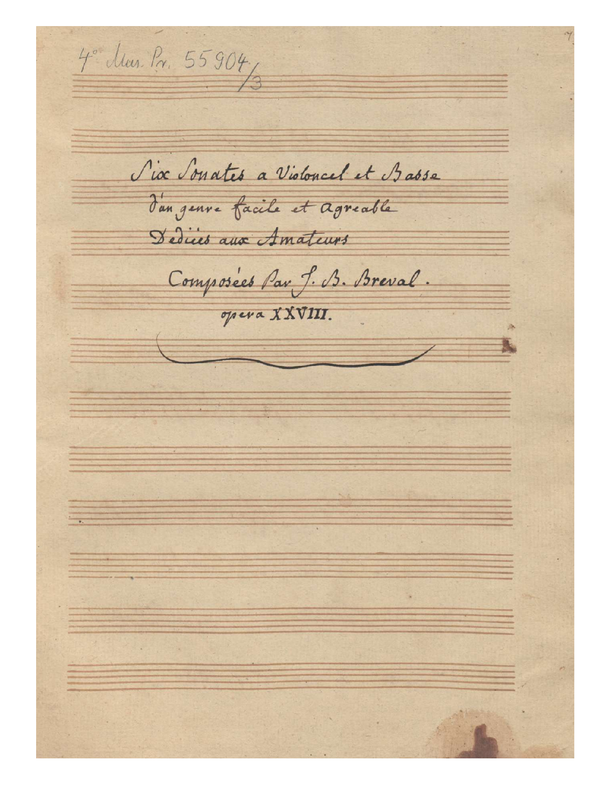 4° Mus. Pr. 55904/3
Six Sonates a Violoncel et Basse
d'un genre facile et agreable
Dediées aux Amateurs
Composées Par J. B. Breval.
opera XXVIII.